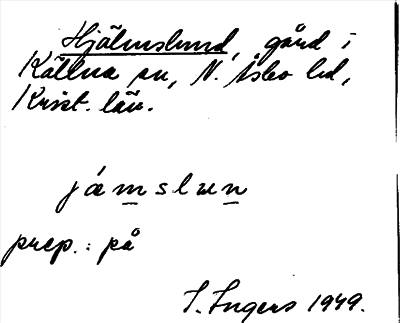 Hjälmslund, gård i
Källna sn, N. Åsbo hd,
Krist. län.
jámslun
prep.: på
I. Ingers 1949.